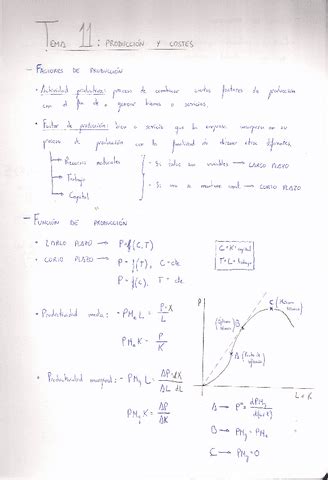 TEMA 11: PRODUCCIÓN Y COSTES
- FACTORES DE PRODUCCIÓN
• Actividad productiva: proceso de combinar varios factores de producción
con el fin de generar bienes o servicios.
• Factor de producción: bien o servicio que la empresa incorpora en su
proceso de producción con la finalidad de obtener otros diferentes.
→ Recursos naturales
→ Trabajo
→ Capital
- Si todos son variables → LARGO PLAZO
- Si uno se mantiene const → CORTO PLAZO
- FUNCIÓN DE PRODUCCIÓN
• LARGO PLAZO → P=f(C,T)
• CORTO PLAZO → P = f(T), C = cte
P = f(C), T = cte
C = K = capital
T = L = trabajo
• Productividad media: - PMe L = P/L
PMe K = P/K
• Productividad marginal: - PMg L = ΔP/ΔL
PMg K = ΔP/ΔK
P
C (Máximo técnico)
(Óptimo técnico) B
A (Punto de inflexión)
L o K
A → P'' =
B → PMg = PMe
C → PMg = 0